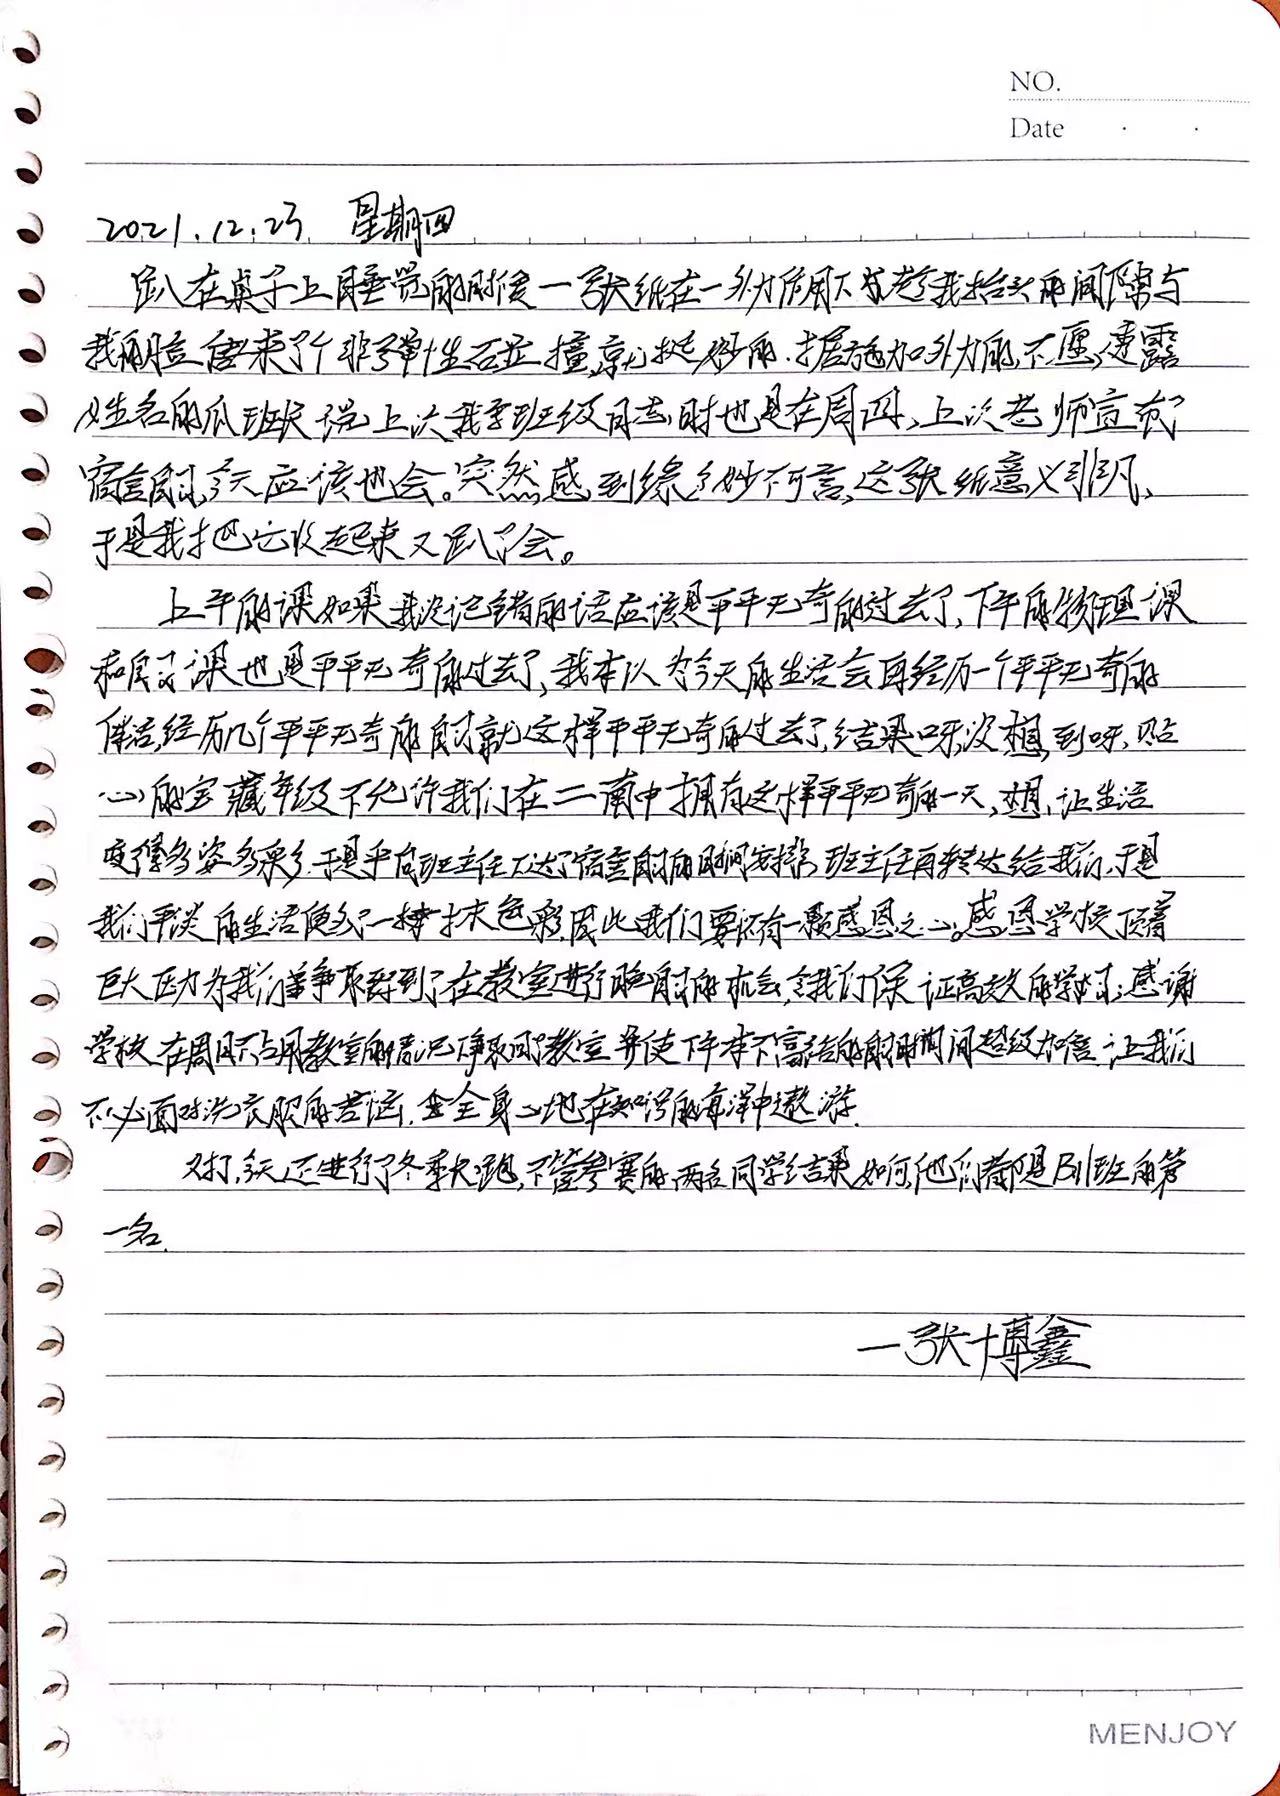 NO.
Date
2021.12.23 星期四
趴在桌子上睡觉的时候一张纸在一外力作用下趁我抬头的间隙与
我的脸来了个非弹性碰撞,就挺妙的.据施加外力的,不愿透露
姓名的瓜班长说,上次我写班级日志时也是在周四,上次老师宣布了
宿舍自习,今天应该也会。突然,感到缘分妙不可言,这张纸意义非凡,
于是我把它收起来又趴了会。
上午的课如果我没记错的话应该是平平无奇的过去了,下午的物理课
和自习课也是平平无奇的过去了,我本以为今天的生活会再经历一个平平无奇的
经历几个平平无奇的自习就这样平平无奇的过去了,结果呀,没想到呀,贴
心的宝藏年级不允许我们在二南中拥有这样平平无奇的一天,想让生活
变得多姿多彩,于是乎向班主任下达了宿舍自习的时间安排,班主任再转达给我们,于是
我们平淡的生活便多了一抹色彩,因此我们要怀有一颗感恩之心。感恩学校顶着
巨大压力为我们争取到了在教室进行晚自习的机会,令我们保证高效的学习;感谢
学校在周日不占用教室的情况下争取回了教室并使下午本不富裕的自习时间超级加倍,让我们
不必面对洗衣服的苦恼,全身心地在知识的海洋中遨游.
又打,今天还进行了冬季长跑,不管参赛的两名同学结果如何,他们都是班的第
一名.
—张博鑫
MENJOY